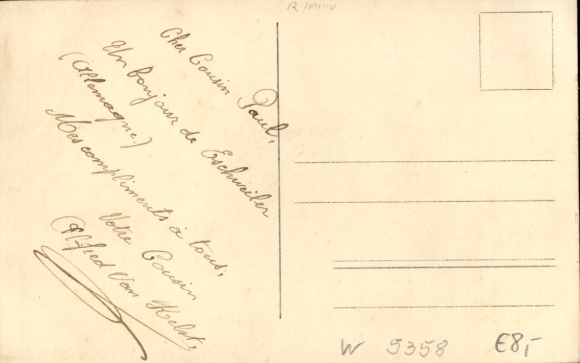 Cher Cousin Paul,
Un bonjour de Eschweiler
(Allemagne.)
Mes compliments à tous,
Votre Cousin
Alfred Van
W 5358 €8,-